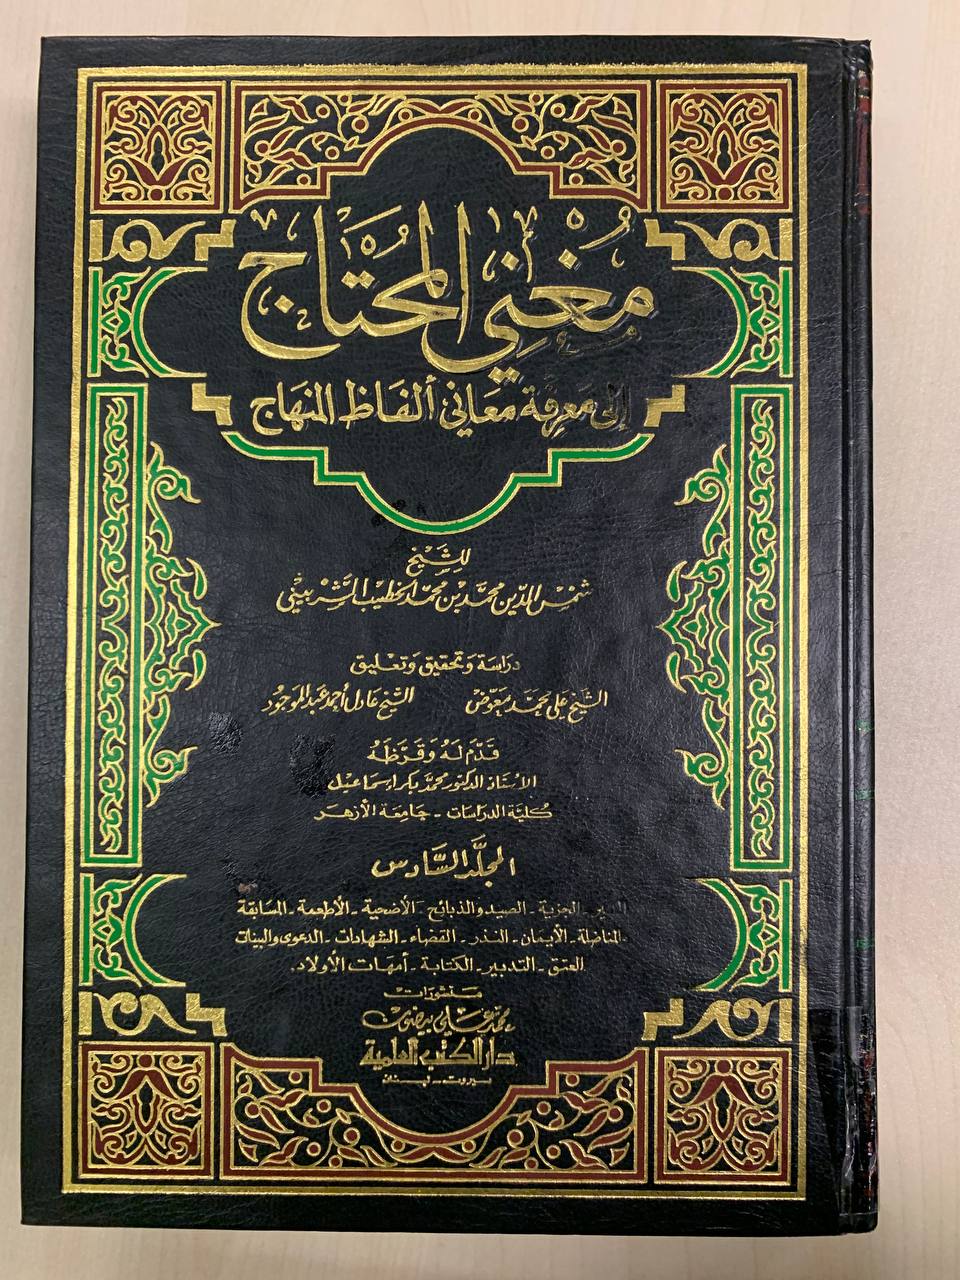 مُغْنِي المُحْتَاج
إلى مَعرِفَة مَعَاني ألفَاظ المنهَاج
للشَّيْخ
شمْس الدِّين محمَّد بْن محمَّد الخطيب الشَّربيني
دراسَة وَتحقيق وَتعليق
الشيخ علي محمَّد معوّض الشيخ عادل أحمد عبد الموجود
قدَّم لَهُ وَقَرَّظَهُ
الأستاذ الدكتور محمَّد بكر إسماعيل
كليَّة الدراسَات - جَامِعَة الأزهَر
المجلَّد السَّادس
السير - الجزية - الصيد والذبائح - الأضحية - الأطعمة - المسابقة
المناضلة - الأيمان - النذر - القضاء - الشهادات - الدعوى والبينات
العتق - التدبير - الكتابة - أمهات الأولاد.
منشورات
محمد علي بيضون
دار الكتب العلمية
بيروت - لبنان